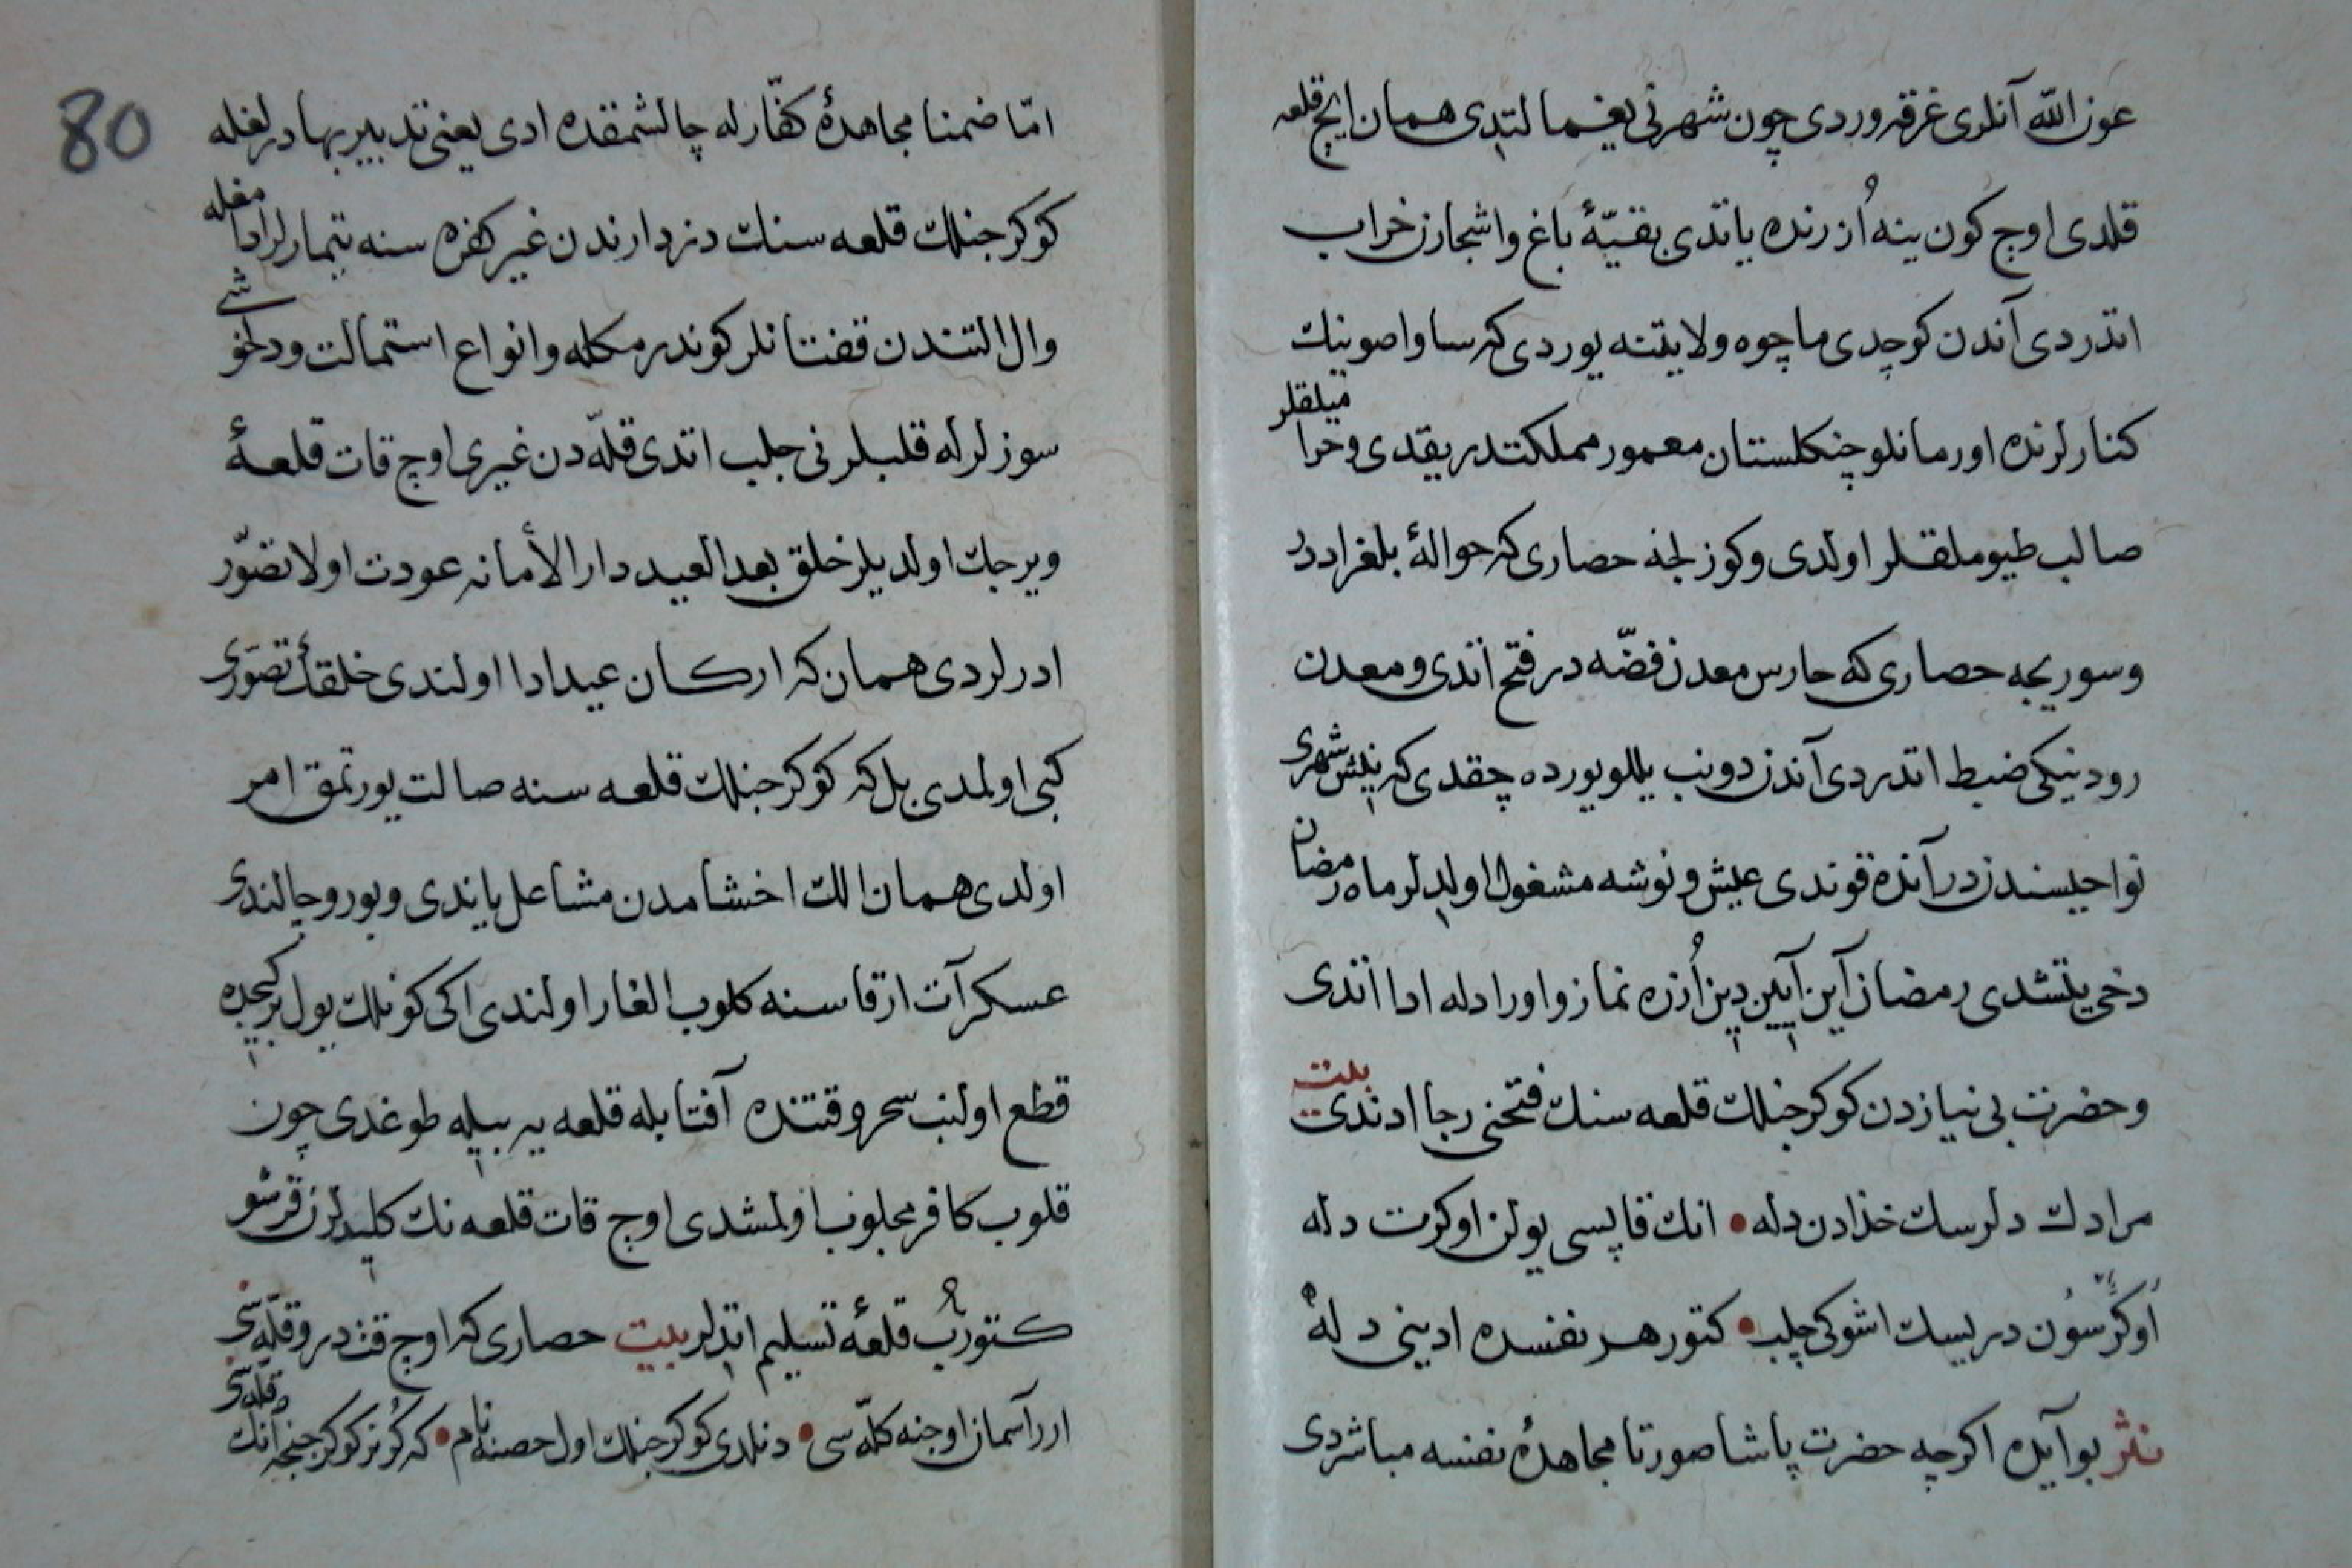 عون الله آنلری غرقه وردی چون شهرنی یغما لتدی همان ایچ قلعه
قلدی اوج کون ینه اُزرنده یاتدی بقیّهٔ باغ واشجارن خراب
اتدردی آندن کوچدی ماچوه ولایتنه یوردی که ساوا صوینك
کنارلرنده اورمانلو چنکلستان معمور مملکتدر یقدی وحرامیلقلر
صالب طیوملقلر اولدی وکوزلجنه حصاری که حوالهٔ بلغراددر
وسوریجه حصاری که حارس معدن فضّه در فتح اتدی ومعدن
رودنیکی ضبط اتدردی آندن دونب یللویورده چقدی که پشش شهری
نواحیسندندر آنده قوندی عیش ونوشه مشغول اولدلر ماه رمضان
دخی یتشدی رمضان آین آیین دین اُزره نماز واورادله ادا اتدی
وحضرت بی نیازدن کوکرجنلك قلعه سنك فتحنی رجا ادندی بیت
مرادك دلرسك خدادن دله • انك قاپسی یولن اوکرت دله
اُوکرسون دریسك اشوکی چلب • کتور هر نفسده ادینی دله
نثر بو آیده اکرچه حضرت پاشا صورتا مجاهدهٔ نفسه مباشردی
80
امّا ضمنا مجاهدهٔ کفّارله چالشمقده ادی یعنی تدبیر بهادرلغله
کوکرجنلك قلعه سنك دزدارندن غیر کفره سنه تیمارلر ادامغله
وال التندن قفتانلر کوندرمکله وانواع استمالت ودلخوشی
سوزلرله قلبلرنی جلب اتدی قلّه دن غیری اوچ قات قلعهٔ
ویرجك اولدیلر خلق بعد العید دار الأمانه عودت اولا تصوّر
ادرلردی همان که ارکان عید ادا اولندی خلقك تصوّری
کبی اولمدی بل که کوکرجنلك قلعه سنه صالت یورتمق امر
اولدی همان الك اخشامدن مشاعل یاندی وبورو چالندی
عسکر آت ارقاسنه کلوب الغار اولندی اکی کونلك یول بر کیجده
قطع اولنب سحر وقتنده آفتابله قلعه یه بیله طوغدی چون
قلوب کافر مجلوب اولمشدی اوچ قات قلعه نك کلیدلرن قرشو
کتورب قلعهٔ تسلیم اتدلر بیت حصاری که اوچ قت در وقلّه سی
ارر آسمان اوجنه کلّه سی • دنلدی کوکرجنلك اول حصنه نام • که کُوز کوکرجنجه آنك قلّه سی